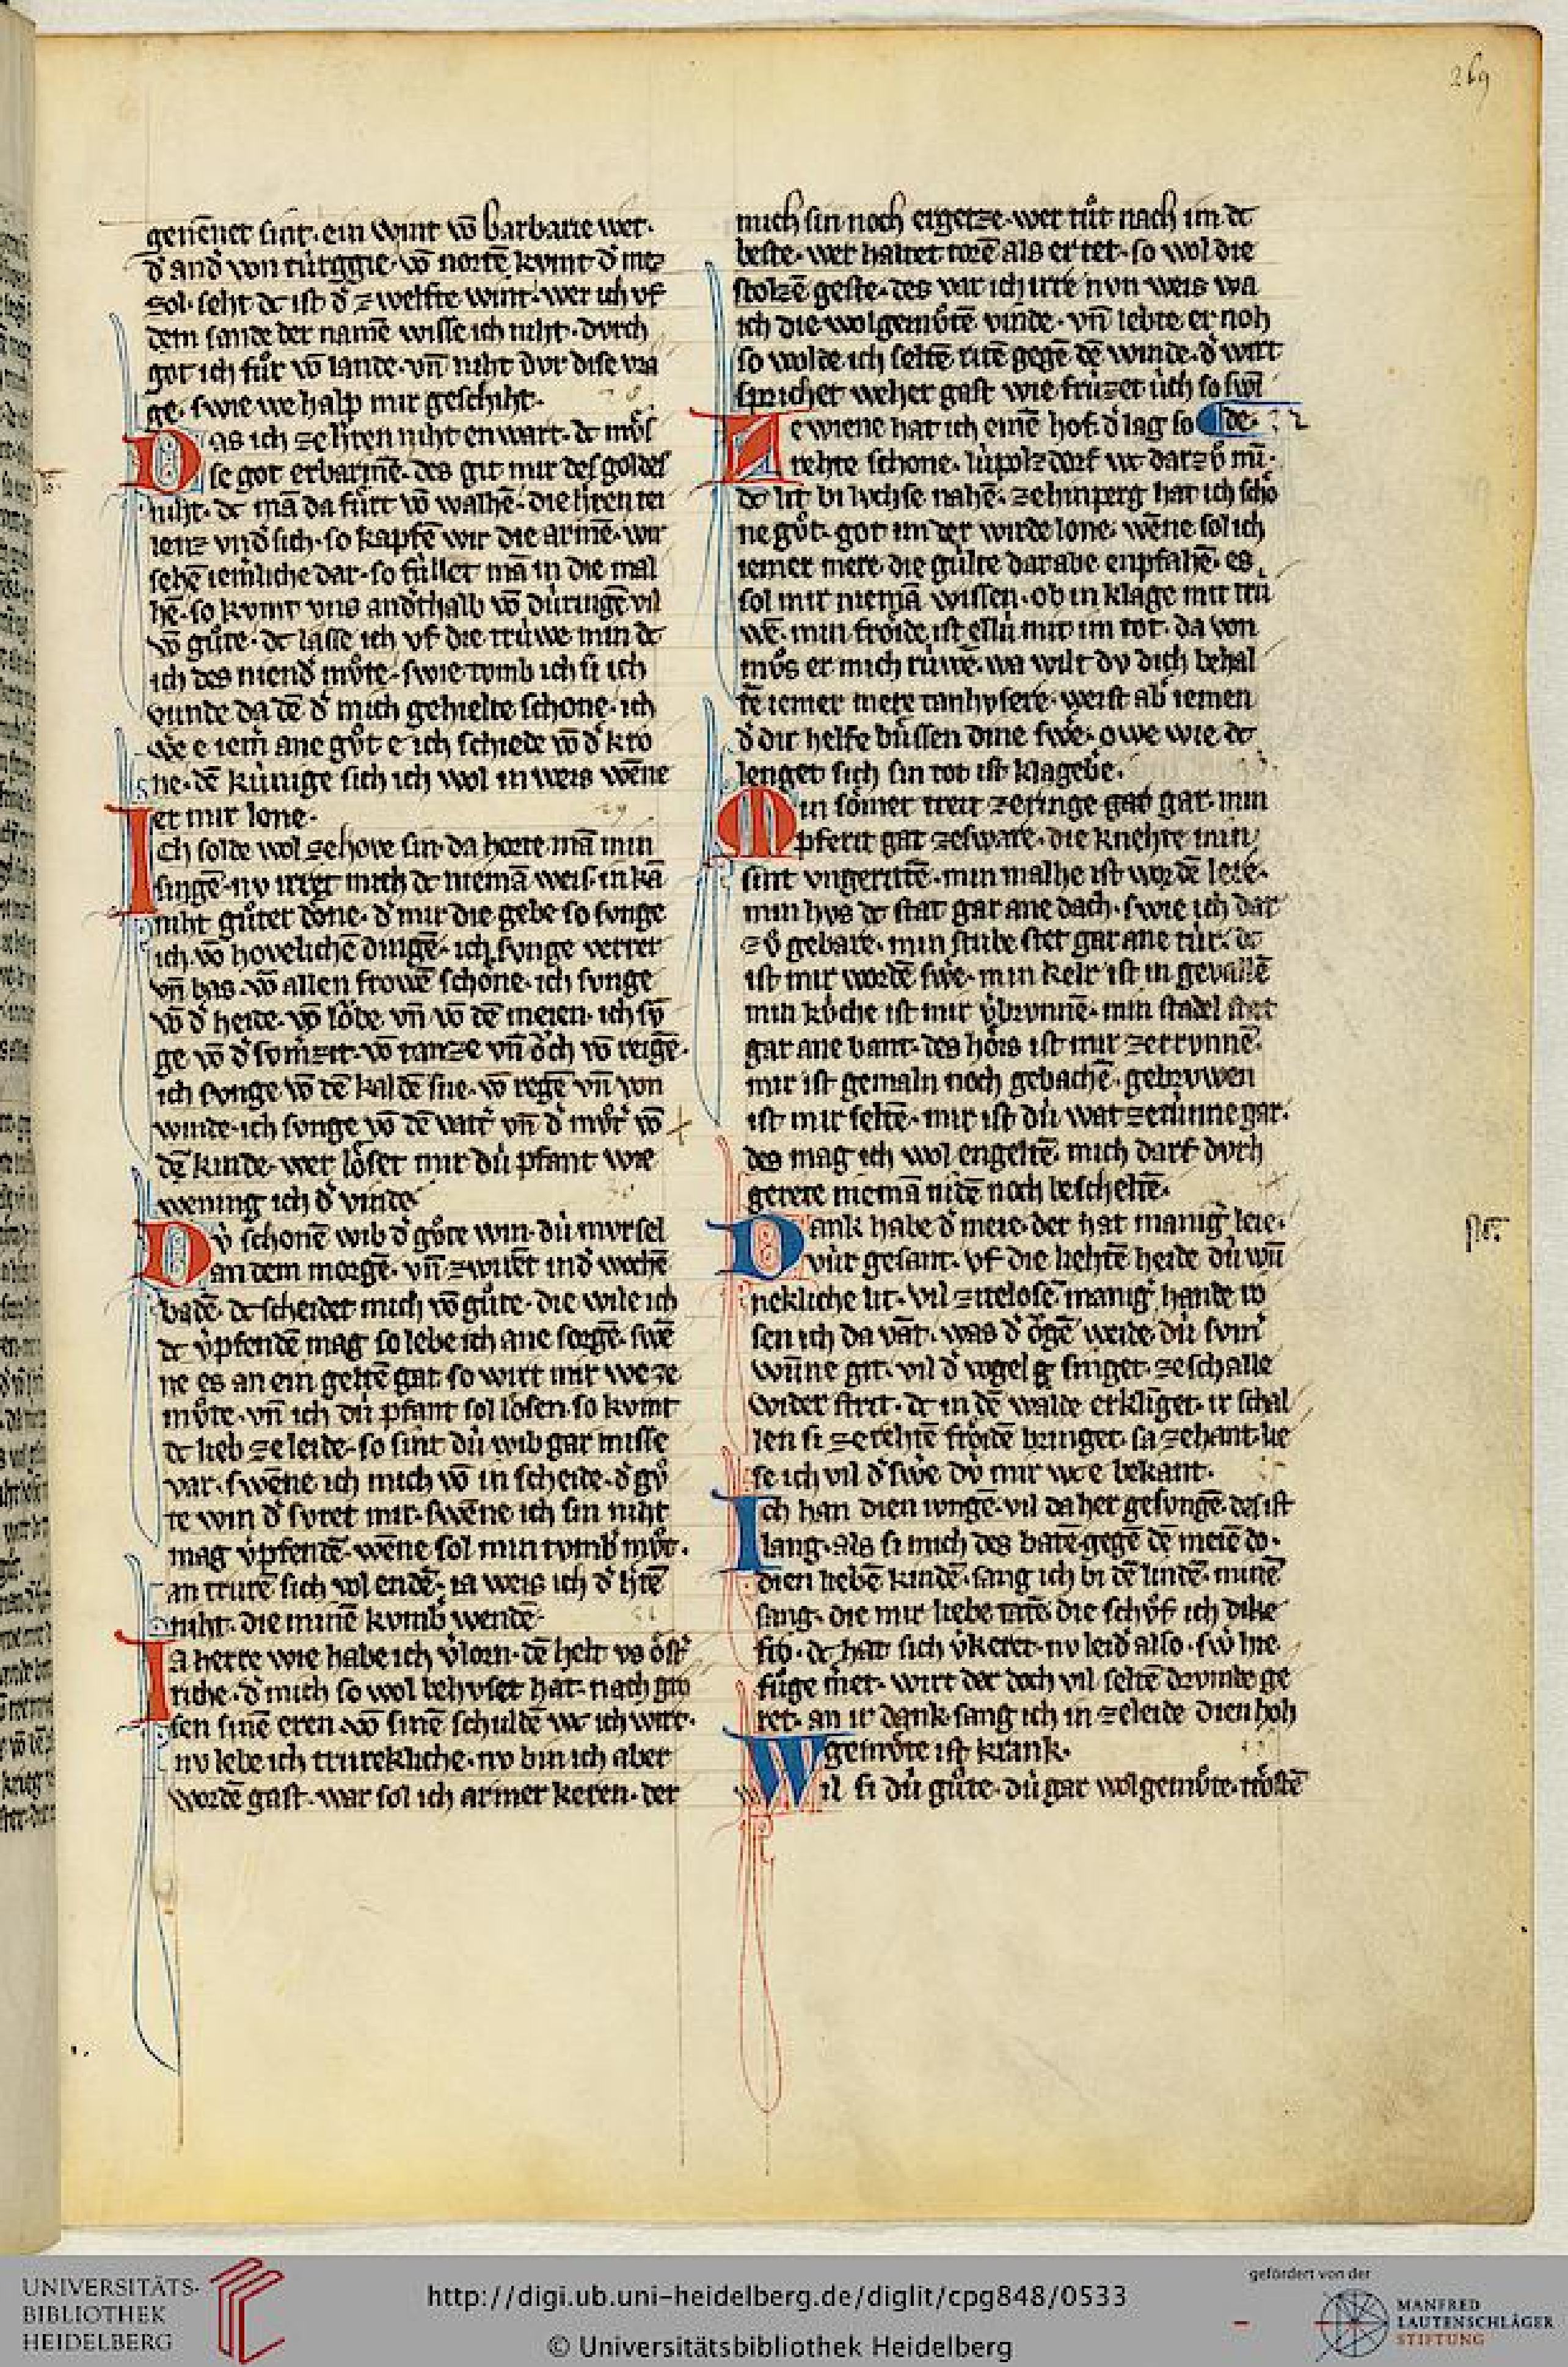 269
genēnet sint. ein wint vō barbarie wet.
d̾ and̾ von türggie. vō nortē kvmt d̾ mez
zol. seht dc ist d̾ zwelfte wint. wer ich vf
dem sande der namē wisse ich niht. dvrch
got ich fůr vō lande. vn̄ niht dvr dise vra
ge. swie we halp mir geschiht.
Das ich ze h̾ren niht enwart. dc mv̊s
se got erbarmē. des git mir des goldes
niht. dc mā da fürt vō walhē. die h̾ren tei
lenz vnd̾ sich. so kapfē wir die armē. wir
sehē iemliche dar. so füllet mā in die mal
hē. so kvmt vns and̾thalb vō düringē vil
vō gůte. dc lasse ich vf die trüwe min dc
ich des niend̾ mv̊te. swie tvmb ich si ich
vunde da dē d̾ mich gehielte schone. ich
we̾ e iem̾ ane gůt e ich schiede vō d̾ kro
ne. dē künige sich ich wol in weis wēne
er mir lone.
Ich solde wol ze hove sin. da horte mā min
singē. nv irret mich dc niemā weis. in kā
niht gůter done. d̾ mir die gebe so svnge
ich. vō hovelichē dingē. ich svnge verrer
vn̄ bas. vō allen frowē schone. ich svnge
vō d̾ heide. vō lǒbe vn̄ vō dē meien. ich sv̄
ge vō d̾ svm̾zit. vō tanze vn̄ ǒch vō reigē.
ich svnge vō dē kaldē sne. vō regē vn̄ von
winde. ich svnge vō dē vatt̾ vn̄ d̾ mv̊t̾ vō
dē kinde. wer lǒset mir dü pfant wie
wening ich d̾ vinde.
Dü schonē wib d̾ gůte win. dü mvrsel
an dem morgē. vn̄ zwirēt in d̾ wochē
badē. dc scheidet mich vō gůte. die wile ich
dc v̾pfendē mag so lebe ich ane sorgē. swē
ne es an ein geltē gat so wirt mir we ze
mv̊te. vn̄ ich dü pfant sol lösen. so kvmt
dc lieb ze leide. so sint dü wib gar misse
var. swēne ich mich vō in scheide. d̾ gv̊
te win d̾ svret mir. swēne ich sin niht
mag v̾pfendē. wēne sol min tvmb̾ mv̊t.
an trurē sich vol endē. ia weis ich d̾ h̾rē
niht. die minē kvmb̾ wendē.
Ia herre wie habe ich v̾lorn. dē helt vs ǒst̾
riche. d̾ mich so wol behvset hat. nach gro
sen sinē eren. vō sinē schuldē wc ich wirt.
nv lebe ich trurekliche. nv bin ich aber
wordē gast. war sol ich armer keren. der
mich sin noch ergetze. wer tůt nach im dc
beste. wer haltet torē als er tet. so wol die
stolzē geste. des var ich irre nvn weis wa
ich die wolgemůtē vinde. vn̄ lebte er noh
so wolde ich seltē ritē gegē dē winde. d̾ wirt
sprichet we her gast wie früzet üch so swī
de.
Ze wiene hat ich einē hof. d̾ lag so
rehte schone. lüpolz dorf wc dar zv̊ mī.
dc lit bi lvchse nahē. ze hinperg hat ich scho
ne gůt. got im der wirde lone. wēne sol ich
iemer mere. die gülte dar abe enpfahē. es
sol mir niemā wissen. ob in klage mit trü
wē. min frǒide ist ellü mit im tot. da von
mv̊s er mich rüwē. wa wilt dv dich behal
tē iemer mere tanhvsere. weist ab̾ iemen
d̾ dir helfe büssen dine swe̾. owe wie dc
lenget sich sin tot ist klagebe̾.
Min sǒmer treit ze ringe gar. min
pferit gat ze sware. die knehte min
sint vngerittē. min malhe ist wordē lere.
min hvs dc stat gar ane dach. swie ich dar
zv̊ gebare. min stube stet gar ane tür. dc
ist mir wordē swe̾. min kelr ist in gevallē
min kvche ist mir v̾brvnnē. min stadel stet
gar ane bant. des hǒis ist mir zerrvnnē.
mir ist gemaln noch gebachē. gebrvwen
ist mir seltē. mir ist dü wat ze dünne gar.
des mag ich wol engeltē. mich darf dvrh
gerete niemā nidē noch bescheltē.
Dank habe d̾ meie. der hat manig̾ leie.
vür gesant. vf die liehtē heide dü wū
nekliche lit. vil zitelosē. manig̾ hande ro
sen ich da vāt. was d̾ ǒgē weide. dü svm̾
wn̄ne git. vil d̾ vogel singet. ze schalle
wider strit. dc in dē walde erklīget. ir schal
len si ze rehtē frǒidē bringet. sa zehant. lie
se ich vil d̾ swe̾ dv mir wc e bekant.
Ich han dien ivngē. vil da her gesvngē. des ist
lang. als si mich des batē. gegē dē meiē do.
dien liebē kindē. sang ich bi dē lindē. minē
sang. die mir liebe tatē. die schv̊f ich dike
fro. dc hat sich v̾keret. nv leid̾ also. sw̾ hie
fůge meret. wirt der doch vil seltē drvmbe ge
ret. an ir dank. sang ich in ze leide dien hoh
gemůte ist krank.
Wil si dü gůte. dü gar wolgemůte. trǒstē
UNIVERSITÄTS-
BIBLIOTHEK
HEIDELBERG
http://digi.ub.uni-heidelberg.de/diglit/cpg848/0533
© Universitätsbibliothek Heidelberg
gefördert von der
MANFRED
LAUTENSCHLÄGER
STIFTUNG